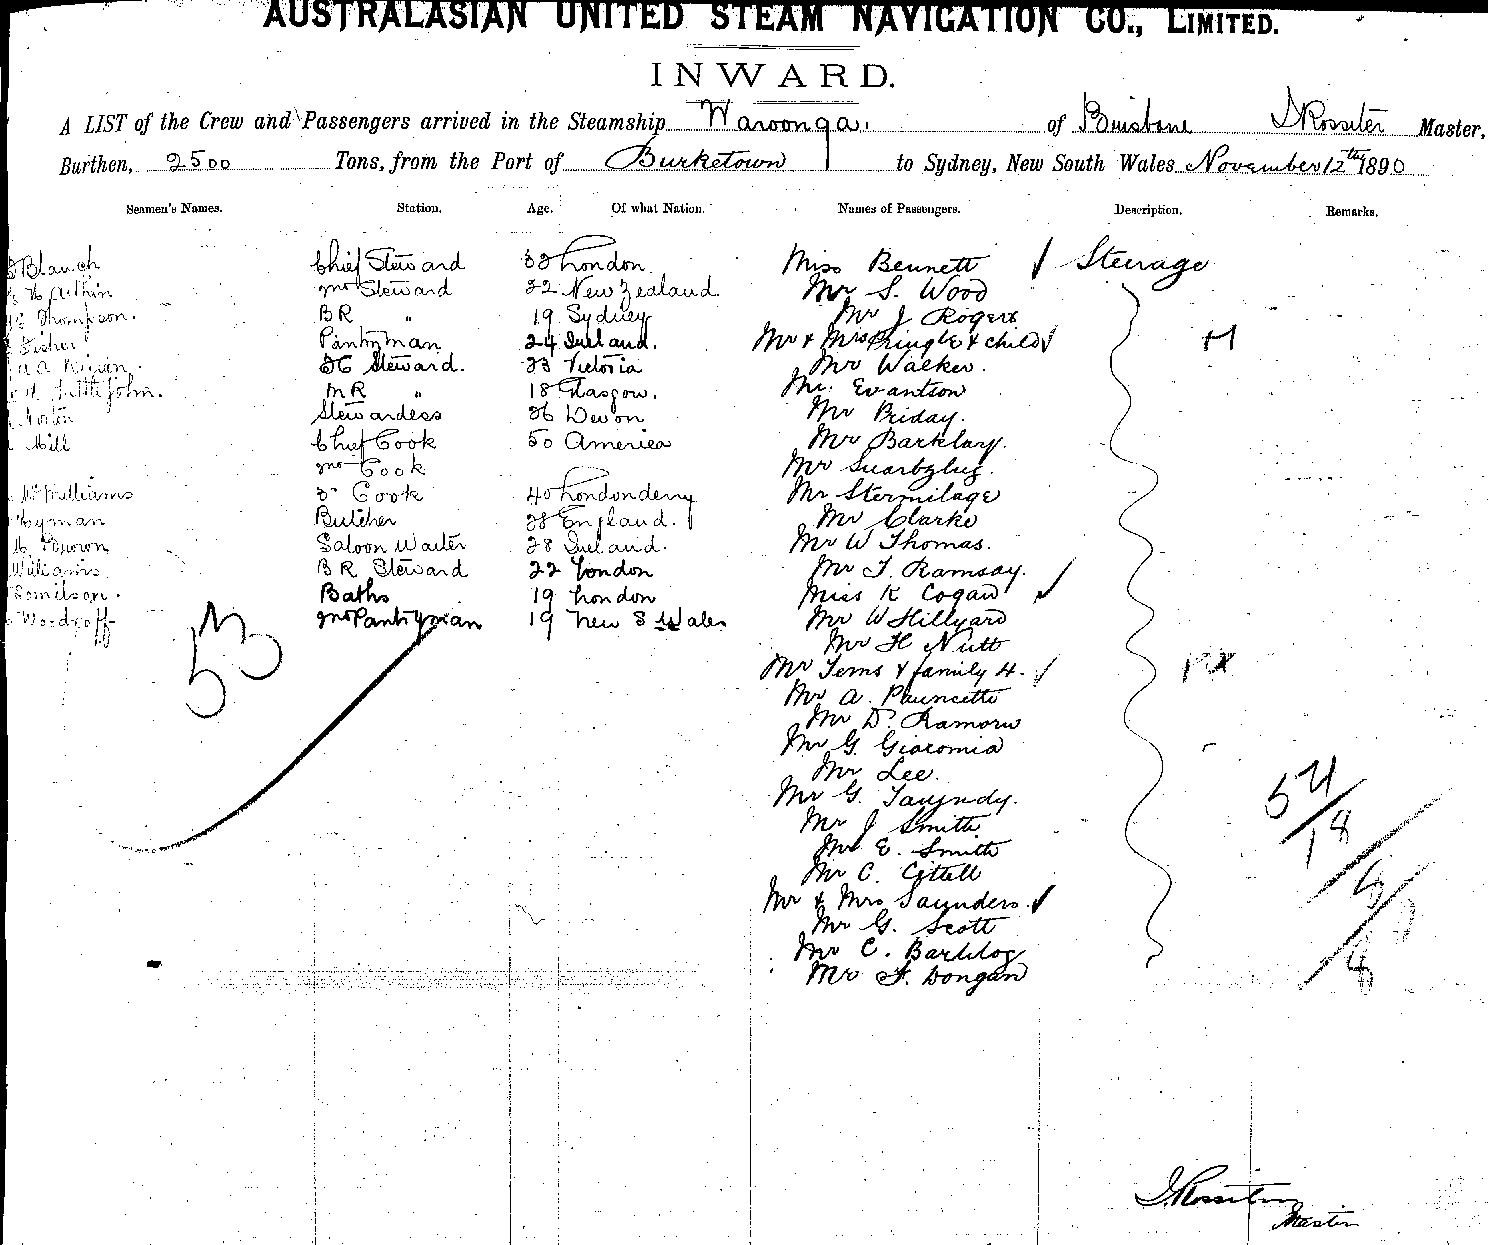 AUSTRALASIAN UNITED STEAM NAVIGATION CO., LIMITED.
INWARD.
A LIST of the Crew and Passengers arrived in the Steamship Waroonga. of Brisbane Rossiter Master,
Burthen, 2500 Tons, from the Port of Burketown to Sydney, New South Wales November 12th 1890
Seamen's Names. Station. Age. Of what Nation. Names of Passengers. Description. Remarks.
Blanch Chief Steward 33 London Miss Bennett Steerage
Steward 22 New Zealand Mr S. Wood
Thompson. BR " 19 Sydney Mr J Rogers
Fisher Pantryman 24 Ireland. Mr & Mrs Pringle & child H
Steward. 23 Victoria Mr Walker.
Littlejohn. MR " 18 Glasgow. Mr. Evantson
Stewardess 36 Devon Mr Briday.
Mill Chief Cook 50 America Mr Barklary.
Cook Mr
McWilliams 3 Cook 40 Londonderry Mr Stermilage
Hyman Butcher 28 England. Mr Clarke
Brown Saloon Waiter 28 Ireland. Mr W Thomas.
Williams BR Steward 22 London Mr T. Ramsay.
Tomilson. Baths 19 London Miss K Cogan
Woodroff Pantryman 19 New S Wales Mr W Hillyard
53
Mr H Nutt
Mr Tems & family 4.
Mr A. Pauncette
Mr D. Ramorn
Mr G. Giacomia
Mr Lee.
Mr G. Taugndy.
54
Mr J Smith
18
Mr E. Smith
Mr C. Cittell
Mr & Mrs Saunders.
Mr G. Scott
Mr C.
8
Mr F. Dongan
Rossiter
Master